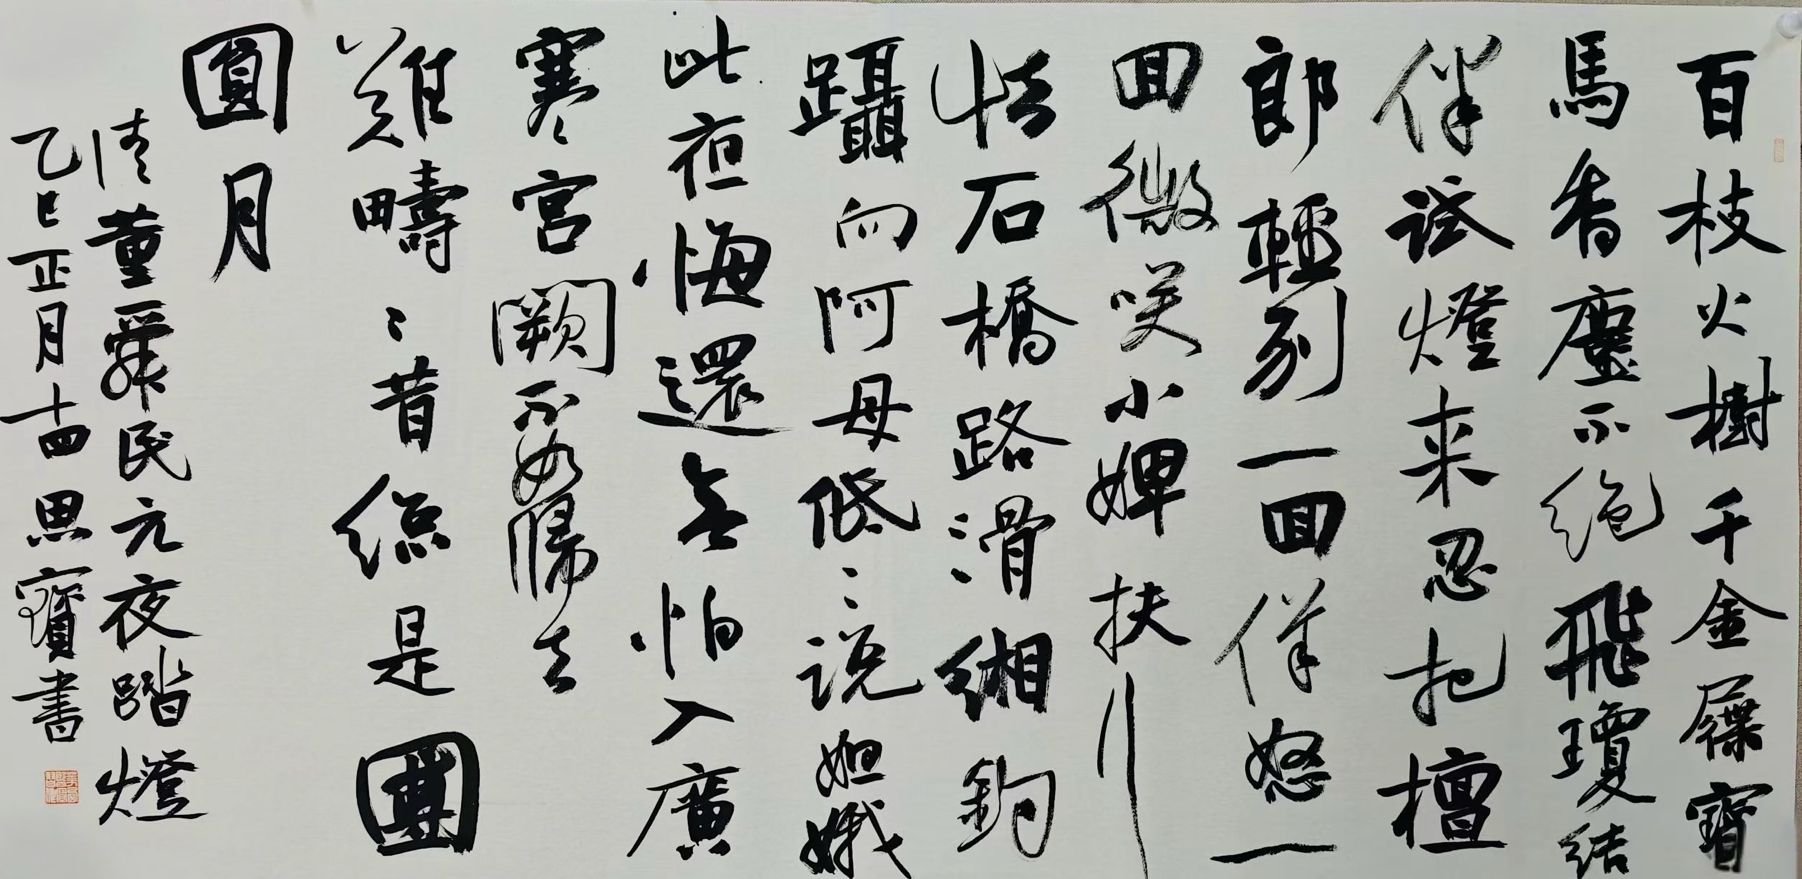 百枝火樹千金屧寶
馬香塵不絕飛瓊結
伴試燈來忍把檀
郎輕別一回佯怒一
回微笑小婢扶行
怯石橋路滑緗鈎
躡向阿母低〻說姮娥
此夜悔還無怕入廣
寒宮闕不如歸去
難疇〻昔總是團
圓月
清董舜民元夜踏燈
乙巳正月十四思寶書